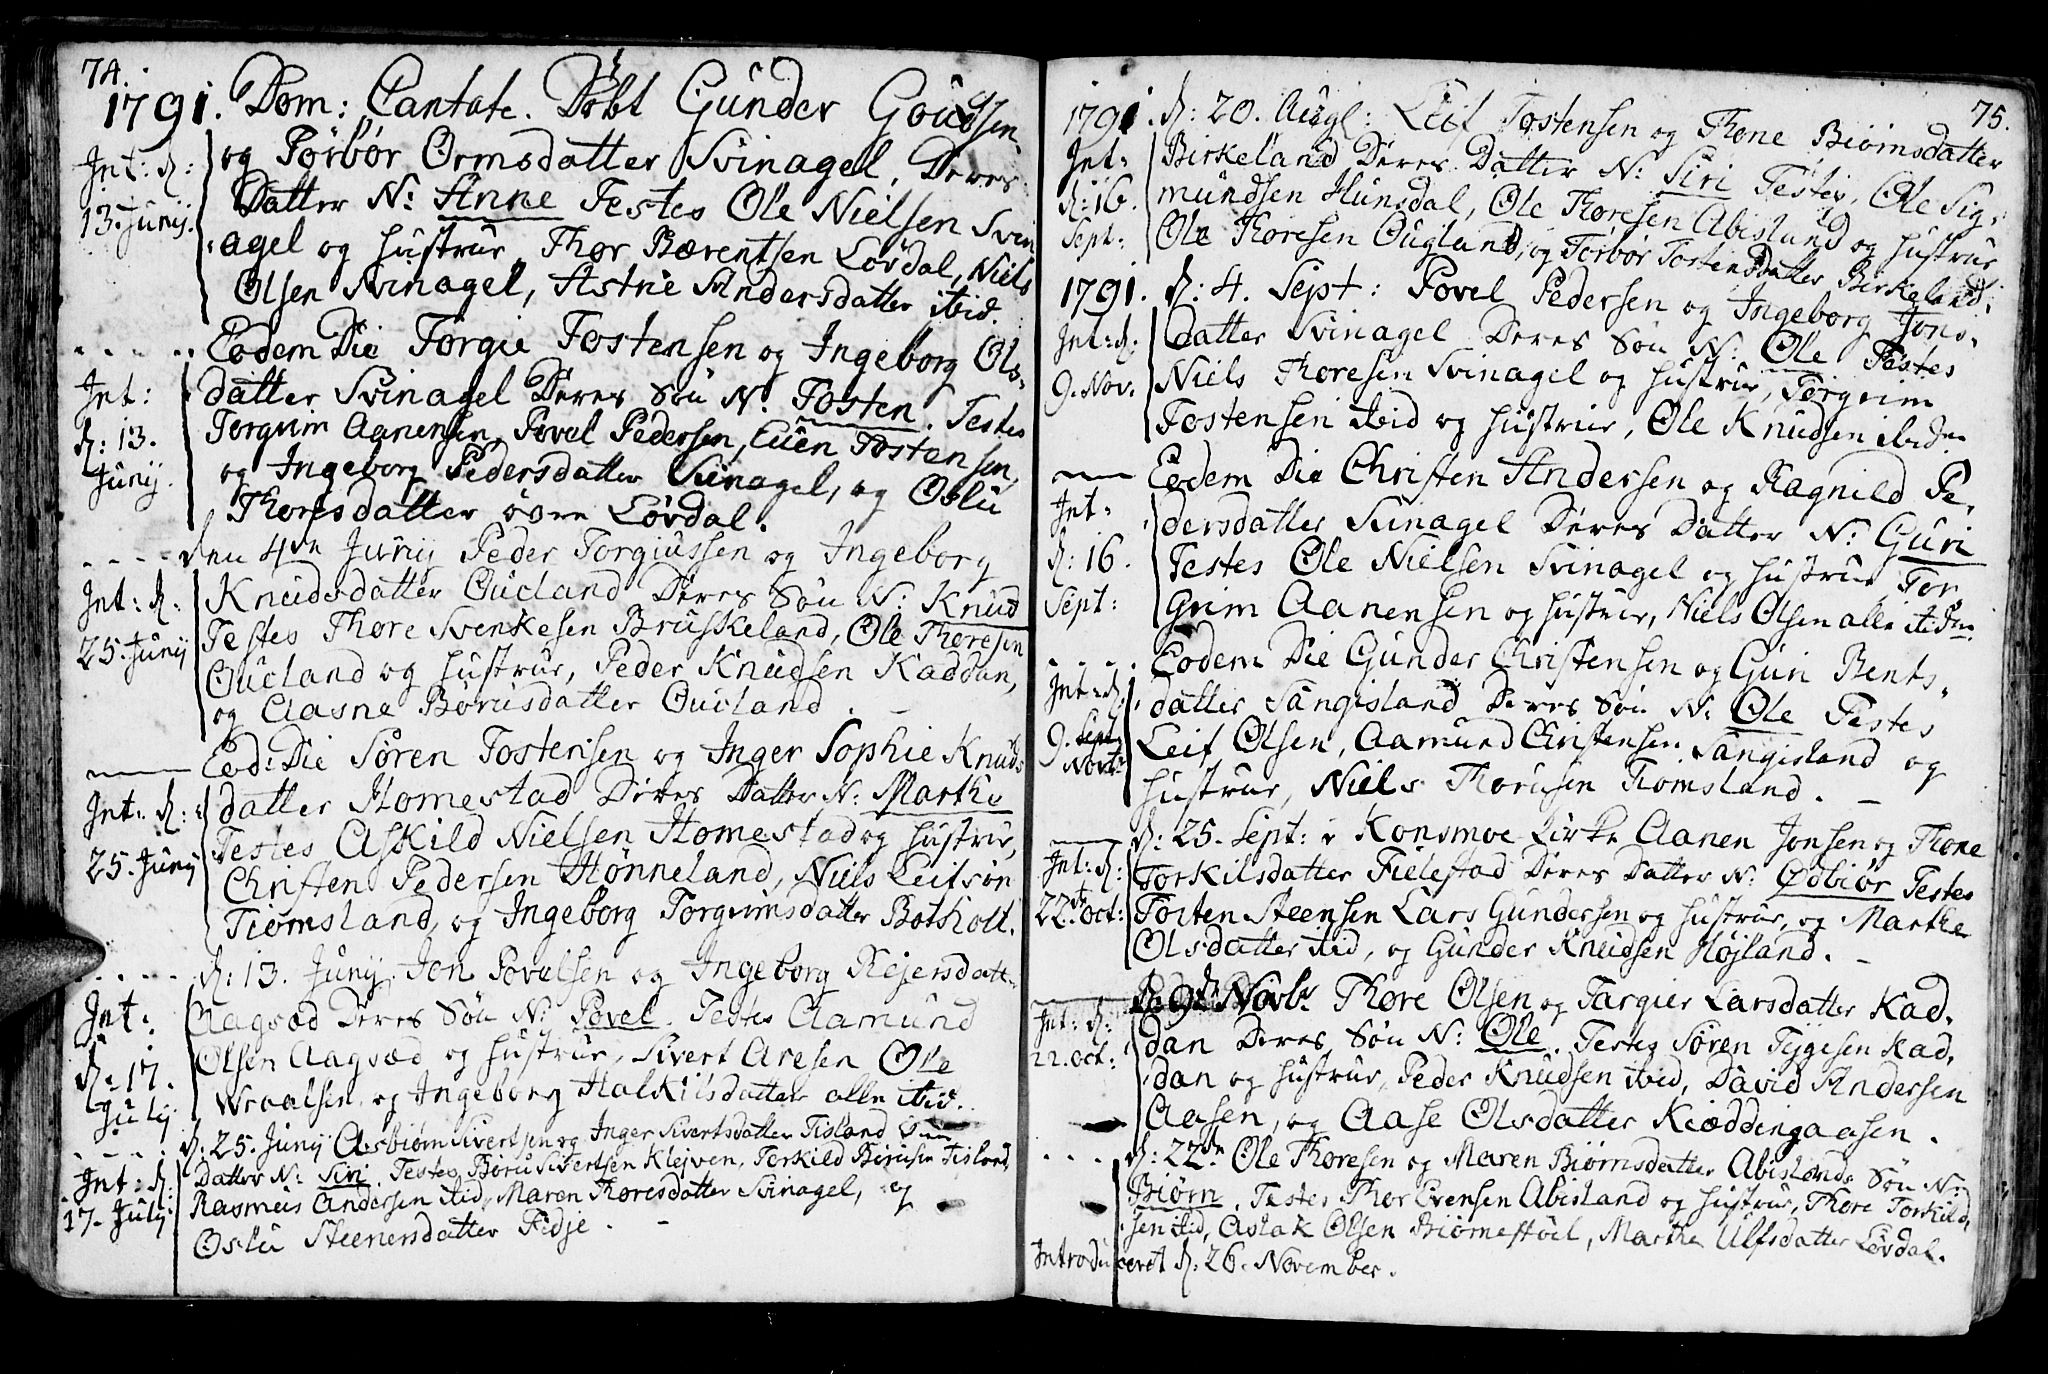 74.
1791. Dom: Cantate. Döbt Gunder Goudsen
Int: d: 13. Junij.
og Torbør Ormsdatter Svinagel, Deres
Datter N: Anne Testes Ole Nielsen Svin
agel og Hustrue, Thor Bærentsen Løvdal, Niels
Olsen Svinagel, Astrie Andersdatter ibid.
Eodem Die Torgie Tostensen og Ingeborg Ols-
Int: d: 13. Junij.
datter Svinagel Deres Søn N: Tosten. Testes
Torgrim Aanensen, Povel Pedersen, Even Tostensen,
og Ingeborg Pedersdatter Svinagel, og Oslu
Thoresdatter øvre Løvdal.
den 4de Junij Peder Torgiussen og Ingeborg
Int: d: 25. Junij
Knudsdatter Ougland Deres Søn N: Knud
Testes Thore Svenkesen Bruskeland, Ole Thoresen
Ougland og Hustrue, Peder Knudsen Kaddan,
og Aasne Börusdatter Ougland.
Eod: Die Sören Tostensen og Inger Sophie Knuds
Int: d: 25. Junij
datter Homestad Deres Datter N: Marthe
Testes Askild Nielsen Homestad og Hustrue,
Christen Pedersen Hönneland, Niels Leifsön
Tiomsland, og Ingeborg Torgrimsdatter Botholt.
d: 13. Junij Jon Povelsen og Ingeborg Rejersdatt.
Int: d: 17. Julij
Aagsæd Deres Søn N: Povel. Testes Aamund
Olsen Aagsæd og Hustrue, Sivert Aresen, Ole
Wraalsen og Ingeborg Halkilsdatter alle ibid.
d: 25. Junij Asbiørn Sivertsen og Inger Sivertsdatter Tisland
Int: d: 17. Julij
Datter N: Siri. Testes Børu Sivertsen Klejven, Torkild Börusen Tisland,
Rasmus Andersen ibid, Maren Thoresdatter Svinagel, og
Oslu Steenersdatter Fidje.
75.
1791. d: 20. Augl: Leif Tostensen og Thone Biörnsdatter
Int: d: 16. Sept:
Birkeland Deres Datter N: Siri Testes, Ole Sig-
mundsen Hunsdal, Ole Thoresen Abisland og Hustrue
Ole Thoresen Ougland, og Torbør Tostensdatter Birkeland.
1791. d: 4. Sept: Povel Pedersen og Ingeborg Jons-
Int: d: 9. Nov.
datter Svinagel Deres Søn N: Ole Testes
Niels Thoresen Svinagel og Hustrue, Torgrim
Tostensen ibid og Hustrue, Ole Knudsen ibidm
Eodem Die Christen Andersen og Ragnild Pe-
Int: d: 16. Sept:
dersdatter Svinagel Deres Datter N: Guri
Testes Ole Nielsen Svinagel og Hustrue, Tor
Grim Aanensen og Hustrue, Niels Olsen alle ibidm
Eodem Die Gunder Christensen og Guri Bents-
Int: d: 9. Sept. Novbr
datter Sangisland Deres Søn N: Ole Testes
Leif Olsen, Aamund Christensen Sangisland og
Hustrue, Niels Thorusen Tiomsland.
d: 25. Sept: i Konsmoe Kirke Aanen Jonsen og Thone
Int: d: 22de Oct:
Torkilsdatter Fielestad Deres Datter N: Ødbiør Testes
Tosten Steensen Lars Gundersen og Hustrue, og Marthe
Olsdatter ibid, og Gunder Knudsen Højland.
d: 9de Novbr Thore Olsen og Targier Larsdatter Kad-
Int: d: 22. Oct:
dan Deres Søn N: Ole. Testes Søren Tygesen Kad-
dan og Hustrue, Peder Knudsen ibid, David Andersen
Aasen, og Aase Olsdatter Kiøddingaasen.
d: 22de Ole Thoresen og Maren Biörnsdatter Abislands Søn N:
Biørn. Testes Thor Evensen Abisland og Hustrue, Thore Torkild-
sen ibid, Aslak Olsen Biörnestöel, Marthe Ulfsdatter Løvdal.
Introduceret d: 26. November.